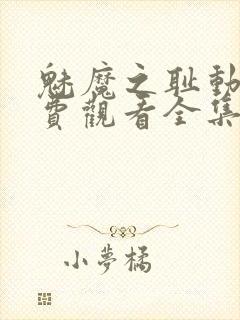 魅魔之耻動
費觀看全集
小夢橘